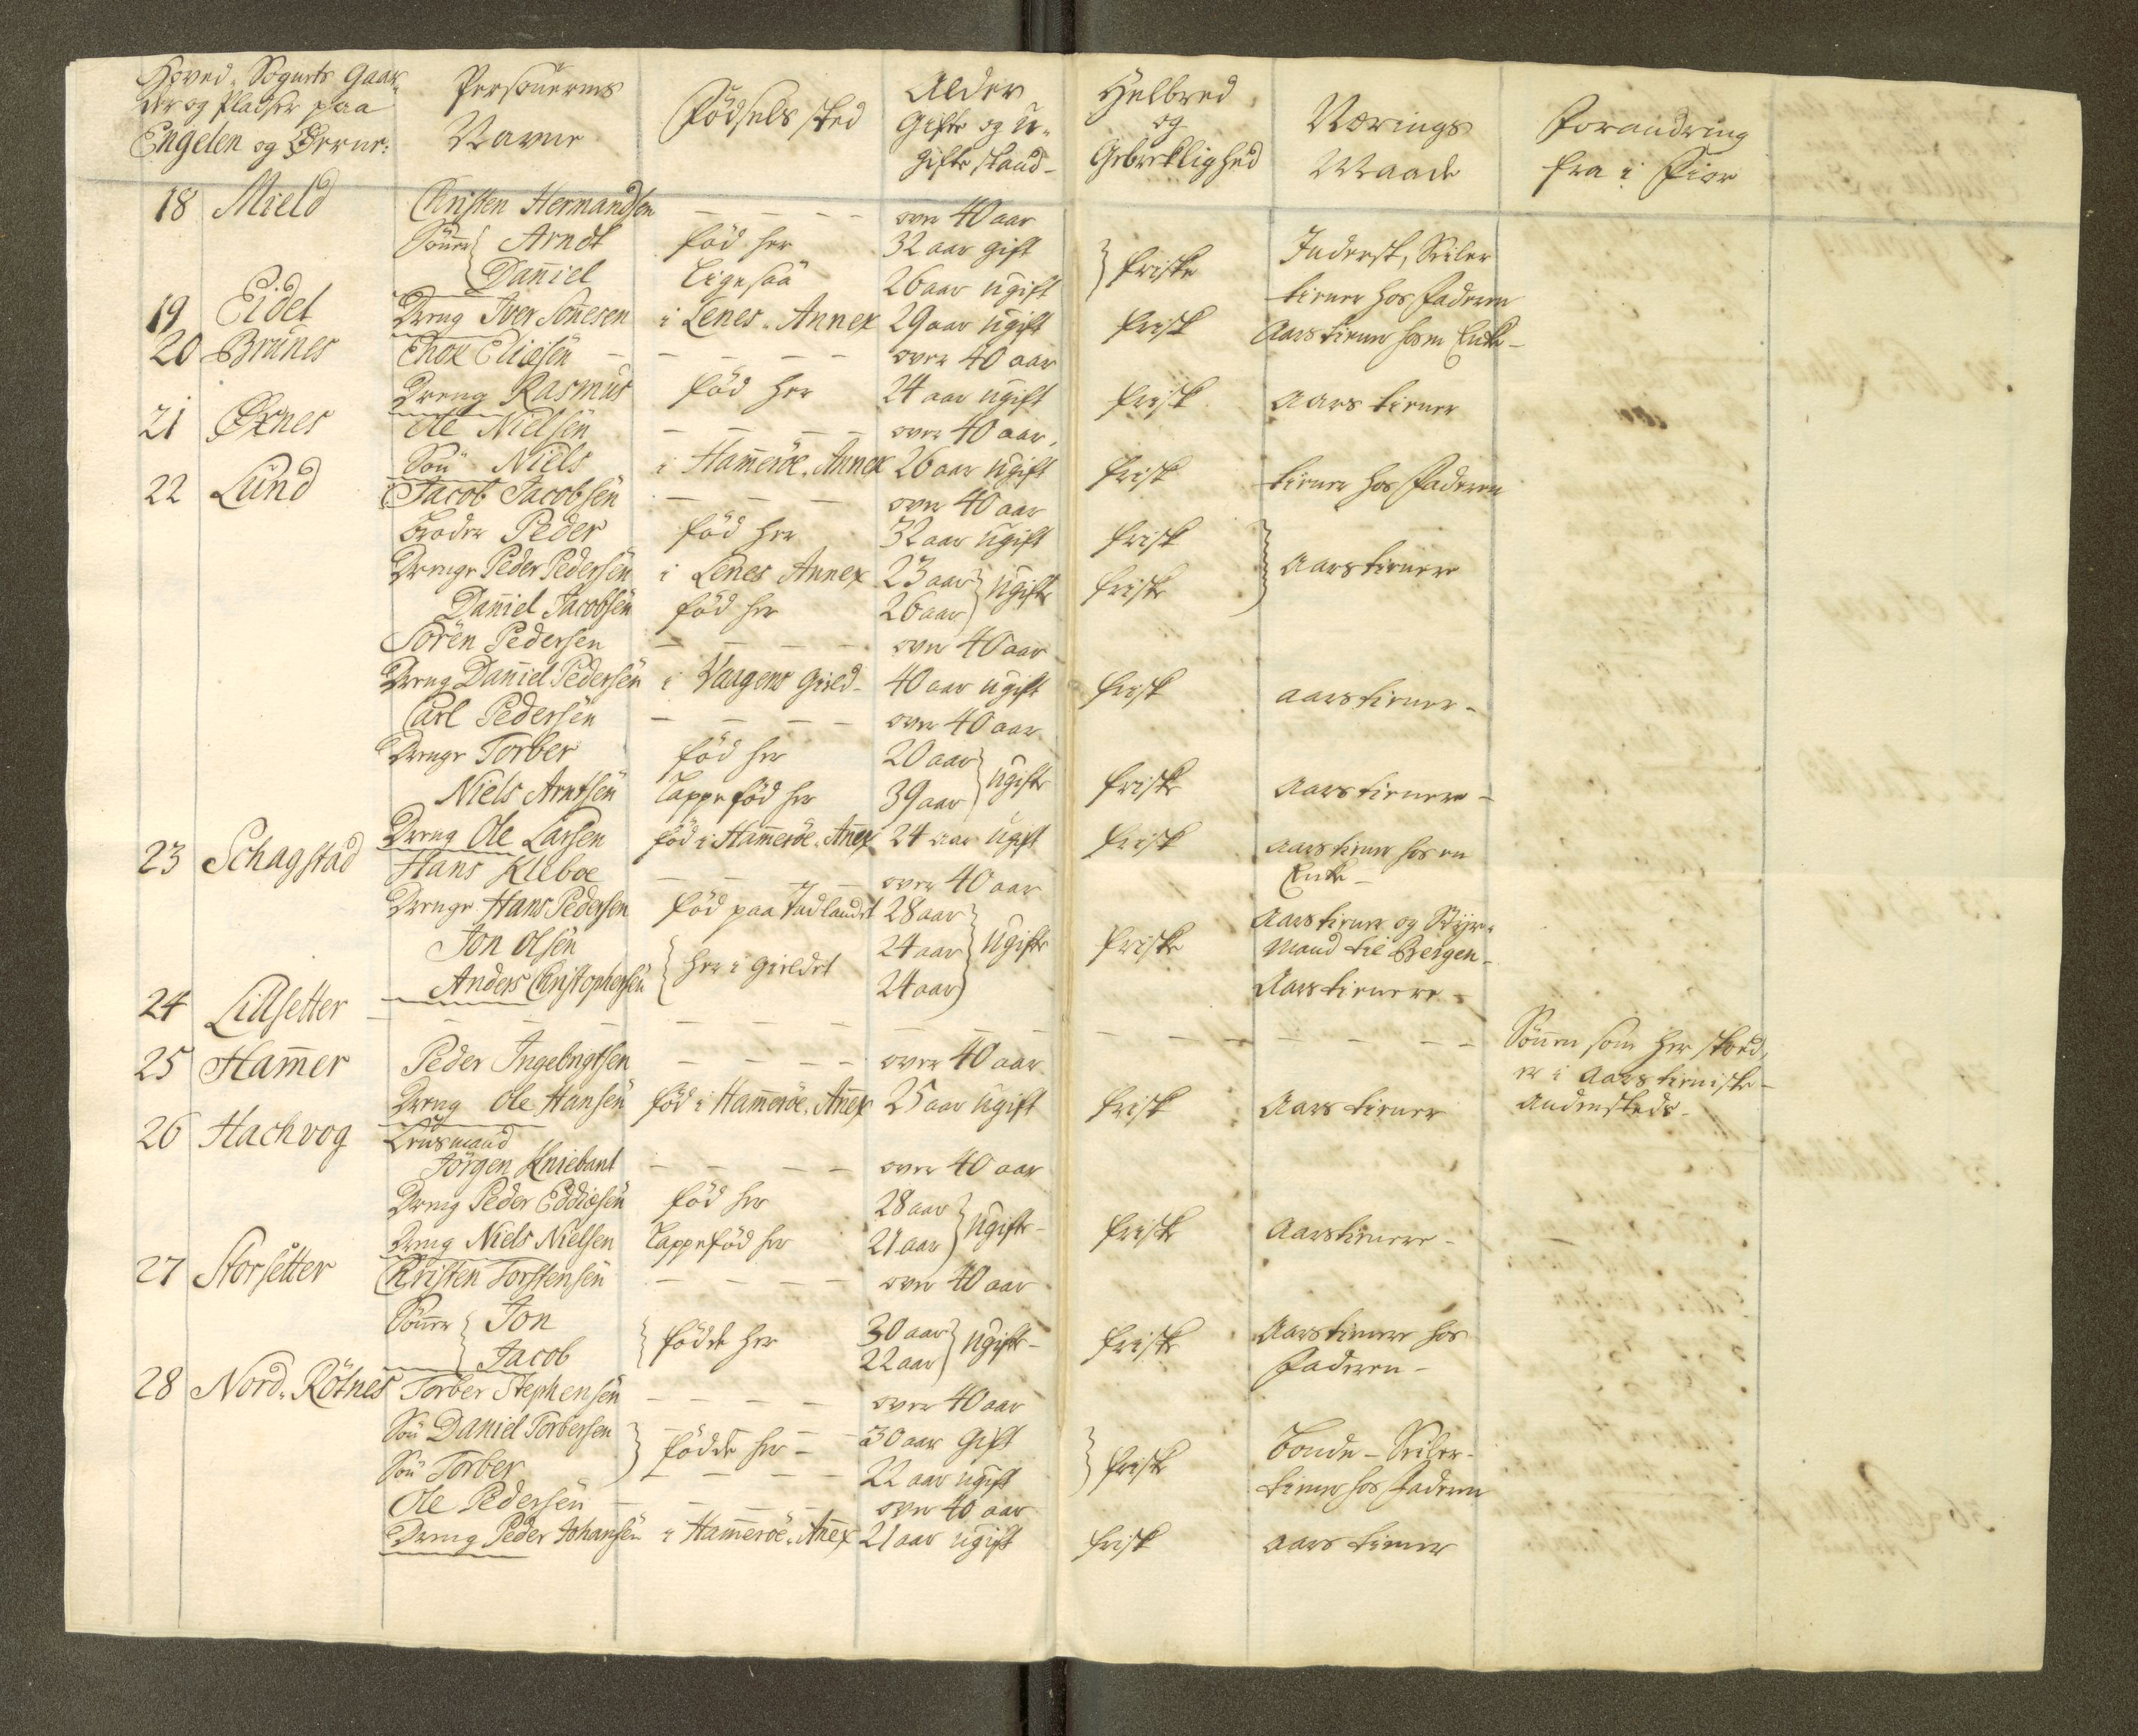 Hoved-Sognets Gaar-
der og Pladser paa
Engelen og Öerne:
Personernes
Navne
Födsels sted
Alder
Gifte og U-
gifte stand-
Helbred
og
Gebreklighed
Nærings
Maade
Forandring
fra i Fior
18 Mield Christen Hermandsen - - - - over 40 aar
Sönner { Arndt föd her 32 aar gift } friske Inderst, Seiler
Dañiel Ligesaa 26 aar ugift tiener hos Faderen
19 Eidet Dreng Iver Sonesen i Lenes-Annex 29 aar ugift frisk Aars tiener hos en Enke-
20 Brünes Enok Eliæsen - - - - over 40 aar
Dreng Rasmus föd her 24 aar ugift frisk Aars tiener
21 Öxnes Ole Nielsen - - - - over 40 aar,
Sön Niels i Ham̃eröe-Annex 26 aar ugift frisk tiener hos Faderen
22 Lund Jacob Jacobsen - - - over 40 aar
Broder Peder föd her 32 aar ugift frisk } Aarstienere
Drenge Peder Pedersen i Lenes Annex 23 aar } ugifte friske
Dañiel Jacobsen föd her 26 aar
Sören Pedersen - - - - over 40 aar
Dreng Dañiel Pedersen i Vaagens Gield- 40 aar ugift frisk aarstiener-
Carl Pedersen - - - - over 40 aar
Drenge Torber föd her 20 aar } ugifte friske Aarstienere-
Niels Arntsen Lappe föd her 39 aar
Dreng Ole Larsen föd i Ham̃eröe-Añex 24 aar ugift frisk Aarstiener hos en
Enke-
23 Schagstad Hans Kleboe - - - over 40 aar
Drenge Hans Pedersen föd paa Indlandet 28 aar } ugifte friske Aarstiener og Styr-
mand til Bergen-
Jon Olsen { her i Gieldet 24 aar
Anders Christophersen 24 aar Aarstienere-
24 Lillsetter - - - - - - - Sönnen som her stoed,
er i Aars tieniste-
andensteds-
25 Ham̃er Peder Ingebrigtsen - - - - over 40 aar
Dreng Ole Hansen föd i Ham̃eröe-Añex 25 aar ugift frisk Aars tiener
26 Hachvog Lensmand
Jörgen Kniebant - - - - over 40 aar
Dreng Peder Eddiæsen föd her 28 aar } ugifte- friske Aarstienere-
Dreng Niels Nielsen Lappe föd her 21 aar
27 Storsetter Christen Torstensen - - - - over 40 aar
Sönner { Jon } födde her 30 aar } ugifte- friske Aarstienere hos
Jacob 22 aar Faderen-
28 Nord-Rötnes Torber Stephensen - - - - over 40 aar
Sön Daniel Torbersen } födde her - 30 aar Gift } friske Bonde-Seiler-
Sön Torber 22 aar ugift tiener hos Faderen
Ole Pedersen - - - - over 40 aar
Dreng Peder Johansen i Ham̃eröe-Añex 21 aar ugift frisk aars tiener